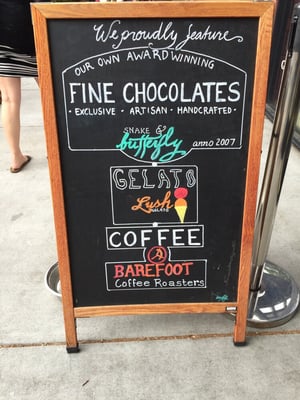 We proudly feature
OUR OWN AWARD WINNING
FINE CHOCOLATES
• EXCLUSIVE • ARTISAN • HANDCRAFTED •
SNAKE &
butterfly
anno 2007
GELATO
Lush
GELATO
COFFEE
BAREFOOT
Coffee Roasters